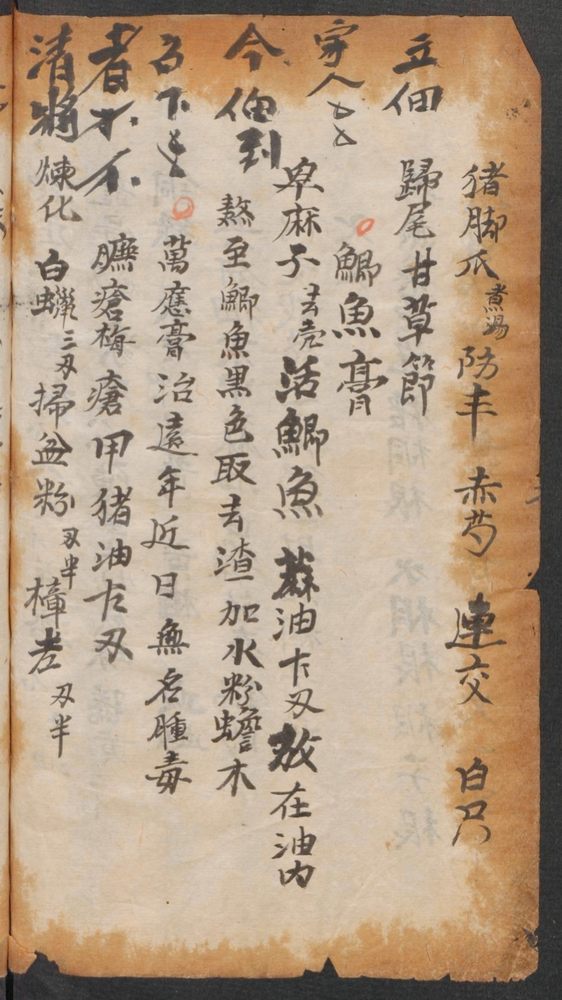 猪脚爪煮湯 防丰 赤芍 連交 白只
歸尾甘草節
鯽魚膏
卑麻子去壳活鯽魚 蔴油 刄放在油內
熬至鯽魚黑色取去渣加水粉蟾木
萬應膏治遠年近日無名腫毒
臁瘡梅瘡甲猪油 刄
煉化 白蠟三刄掃盆粉刄半樟老刄半
立佃
字人
今佃到
名下
者不
清將